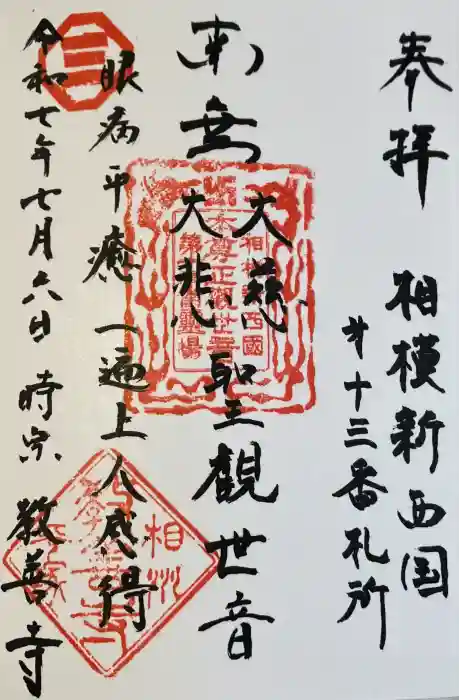 奉拝 相模新西国
才十三番札所
南無大慈大悲聖観世音
眼病平癒 一遍上人感得
令和七年七月六日 時宗 教善寺
相模新西國
本尊正観世音
霊場
相州